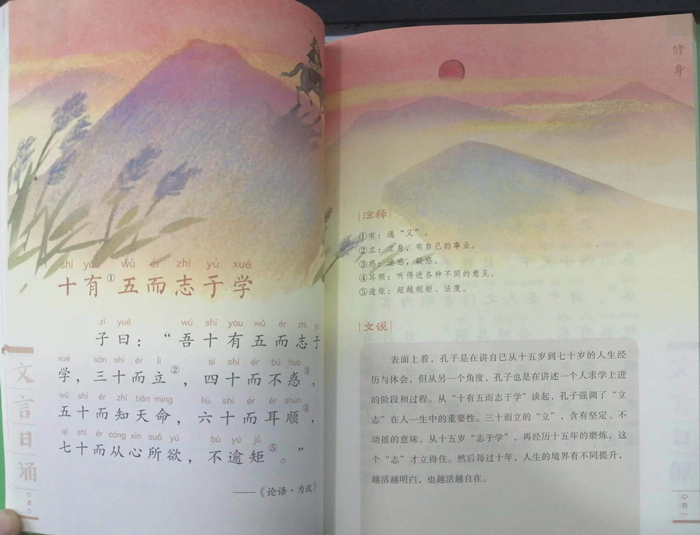 shí yòu wǔ ér zhì yú xué
十有①五而志于学
zǐ yuē wú shí yòu wǔ ér zhì
子曰：“吾十有五而志于
xué sān shí ér lì sì shí ér bú huò
学，三十而立②，四十而不惑③，
wǔ shí ér zhī tiān mìng liù shí ér ěr shùn
五十而知天命，六十而耳顺④，
qī shí ér cóng xīn suǒ yù bù yú jǔ
七十而从心所欲，不逾矩⑤。”
——《论语·为政》
文言日诵
修身
注释
①有：通“又”。
②立：立身，有自己的事业。
③惑：迷惑，疑惑。
④耳顺：听得进各种不同的意见。
⑤逾矩：超越规矩、法度。
文说
表面上看，孔子是在讲自己从十五岁到七十岁的人生经
历与体会，但从另一个角度，孔子也是在讲述一个人求学上进
的阶段和过程。从“十有五而志于学”谈起，孔子强调了“立
志”在人一生中的重要性。三十而立的“立”，含有坚定、不
动摇的意味。从十五岁“志于学”，再经历十五年的磨炼，这
个“志”才立得住。然后每过十年，人生的境界有不同提升，
越活越明白，也越活越自在。